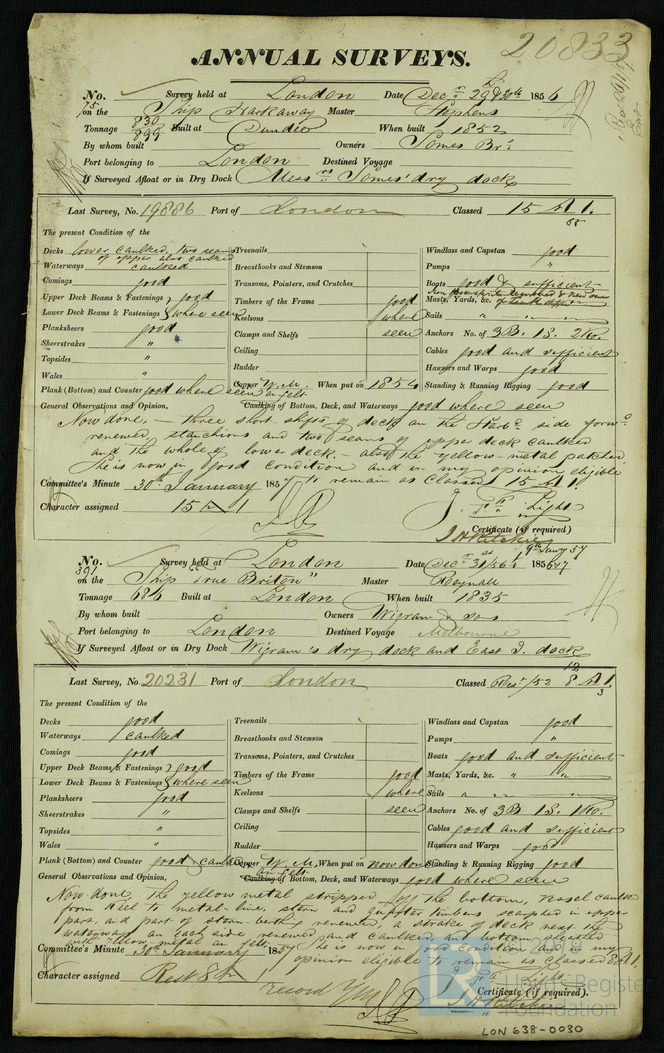 20833
ANNUAL SURVEYS.
No. Survey held at London Date Decr 29 & 30th 1856
75 on the Ship Harkaway Master Stephens
Tonnage 830 899 Built at Dundee When built 1852
By whom built Owners Somes Brs
Port belonging to London Destined Voyage
If Surveyed Afloat or in Dry Dock Messrs Somes' dry dock
Last Survey, No. 19886 Port of London Classed 15 A 1.
55
The present Condition of the
Decks lower caulked, two seams of upper also caulked Treenails Windlass and Capstan good
Waterways caulked Breasthooks and Stemson Pumps "
Comings good Transoms, Pointers, and Crutches Boats good & sufficient
Upper Deck Beams & Fastenings good Timbers of the Frame good Masts, Yards, &c.
Lower Deck Beams & Fastenings where seen Keelsons where Sails "
Planksheers good Clamps and Shelfs seen Anchors No. of 3B. 1S. 2K.
Sheerstrakes " Ceiling Cables good and sufficient
Topsides " Rudder Hawsers and Warps good
Wales " Copper Y.M. on felt When put on 1854 Standing & Running Rigging good
Plank (Bottom) and Counter good where seen
General Observations and Opinion, Caulking of Bottom, Deck, and Waterways good where seen
Now done, — three short shifts of deck on the Starbd side forwd
renewed, stanchions and two seams of upper deck caulked
and the whole of lower deck — also the yellow-metal patched,
She is now in good condition and in my opinion eligible
Committee's Minute 30th January 1857 to remain as Classed 15 A 1.
Character assigned 15 A 1 Light
Certificate (if required)
J H Ritchie
9th Jany 57
No. Survey held at London Date Decr 31/56 1856 & 7
391 on the Ship "True Briton" Master Reynell
Tonnage 646 Built at London When built 1835
By whom built Owners Wigram & Sons
Port belonging to London Destined Voyage Melbourne
If Surveyed Afloat or in Dry Dock Wigram's dry dock and East I. dock
Last Survey, No. 20231 Port of London Classed Rest/52 8 A 1.
12
3
The present Condition of the
Decks good Treenails Windlass and Capstan good
Waterways caulked Breasthooks and Stemson Pumps "
Comings good Transoms, Pointers, and Crutches Boats good and sufficient
Upper Deck Beams & Fastenings good Timbers of the Frame good Masts, Yards, &c. " "
Lower Deck Beams & Fastenings where seen Keelsons where Sails " "
Planksheers good Clamps and Shelfs seen Anchors No. of 3B. 1S. 1K.
Sheerstrakes " Ceiling Cables good and sufficient
Topsides " Rudder Hawsers and Warps good
Wales " Copper Y.M. on felt When put on now done Standing & Running Rigging good
Plank (Bottom) and Counter good & caulked
General Observations and Opinion, Caulking of Bottom, Deck, and Waterways good where seen
Now done, the yellow metal stripped off the bottom, vessel caulk
from keel to metal-line, stem and timbers scarphed in upper
part, and part of stern renewed, a strake of deck next the
waterways on each side renewed and caulked, and bottom sheathed
with yellow metal on felt, she is now in good condition and in my
Committee's Minute 30th January 1857 opinion eligible to remain as Classed 8 A 1
Character assigned Rest 8 A Light
record Ym Certificate (if required).
J H Ritchie
© 2019
LR
Lloyd's Register
Foundation
LON 638-0030